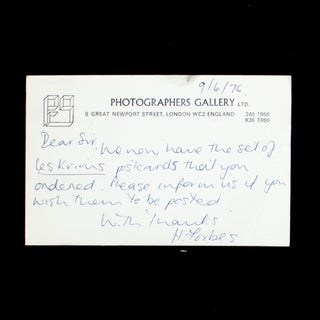 9/6/76.
PHOTOGRAPHERS GALLERY LTD.
8 GREAT NEWPORT STREET, LONDON WC2 ENGLAND 240 1969
836 7860
Dear Sir,
We now have the set of
Les Krims postcards that you
ordered. Please inform us if you
wish them to be posted
With Thanks
H Forbes